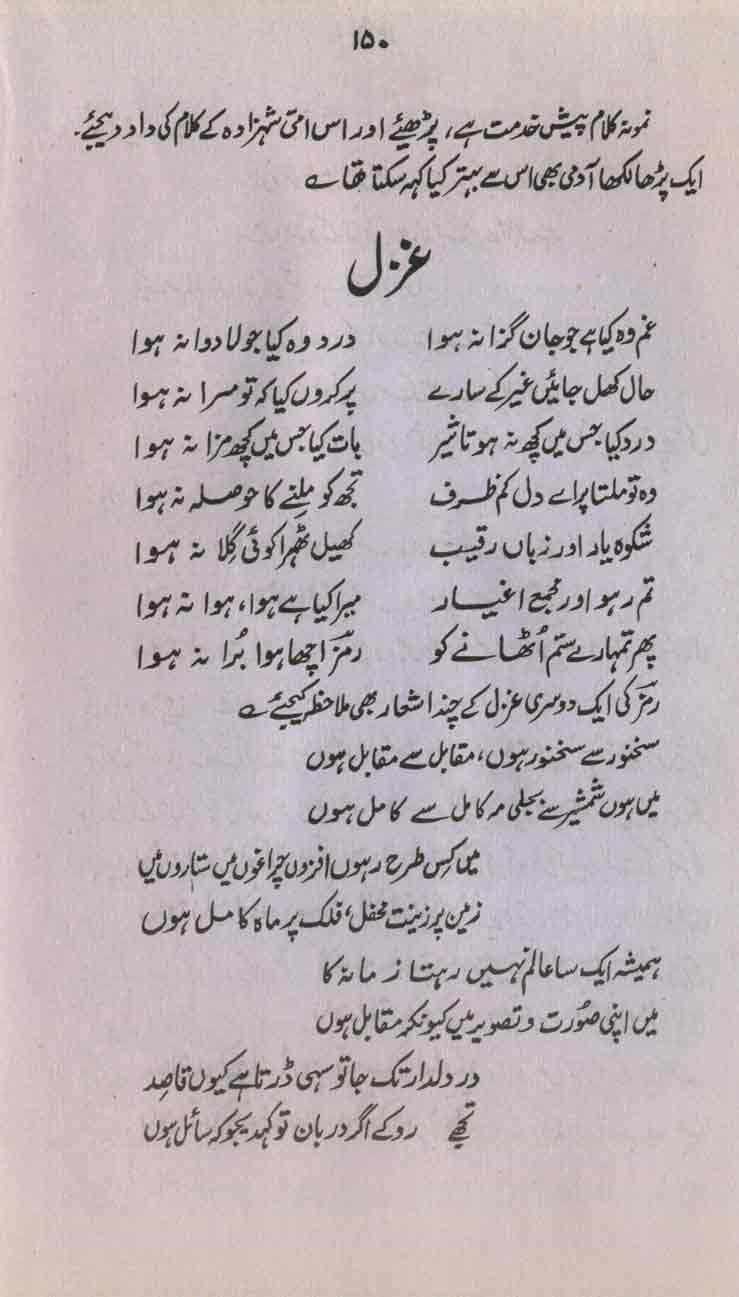 ۱۵۰
نمونہ کلام پیش خدمت ہے، پڑھیئے اور اس امی شہزادہ کے کلام کی داد دیجئے۔
ایک پڑھا لکھا آدمی بھی اس سے بہتر کیا کہہ سکتا تھا ؎
غزل
غم وہ کیا ہے جو جان گزا نہ ہوا درد وہ کیا جو لا دوا نہ ہوا
حال کھل جائیں غیر کے سارے پر کروں کیا کہ تو مرا نہ ہوا
درد کیا جس میں کچھ نہ ہو تاثیر بات کیا جس میں کچھ مزا نہ ہوا
وہ تو ملتا پر اے دل کم ظرف تجھ کو ملنے کا حوصلہ نہ ہوا
شکوہ یار اور زبان رقیب کھیل ٹھہرا کوئی گِلا نہ ہوا
تم رہو اور مجمع اغیار میرا کیا ہے ہوا، ہوا نہ ہوا
پھر تمہارے ستم اُٹھانے کو رمزؔ اچھا ہوا بُرا نہ ہوا
رمزؔ کی ایک دوسری غزل کے چند اشعار بھی ملاحظہ کیجئے ؎
سخنور سے سخنور ہوں، مقابل سے مقابل ہوں
میں ہوں شمشیر سے بجلی مہ کامل سے کامل ہوں
میں کِس طرح رہوں افزوں چراغوں میں ستاروں میں
زمین پر زینت محفل، فلک پر ماہ کامل ہوں
ہمیشہ ایک سا عالم نہیں رہتا زمانہ کا
میں اپنی صُورت و تصویر میں کیونکر مقابل ہوں
در دلدار تک جا تو سہی ڈرتا ہے کیوں قاصِد
تجھے روکے اگر دربان تو کہدیجو کہ سائل ہوں